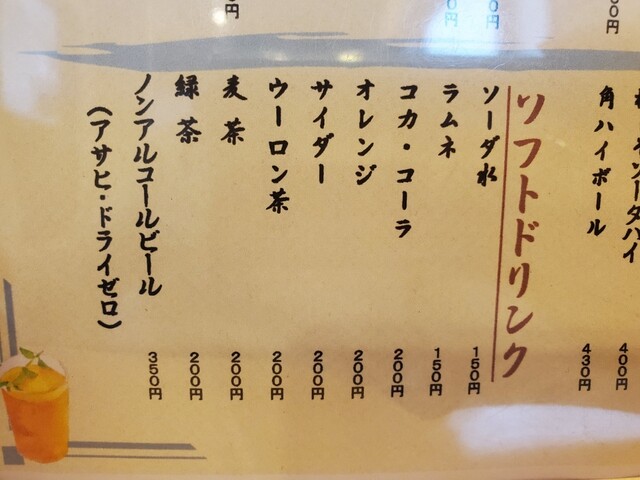 角ハイボール
430円
400円
ソフトドリンク
ソーダ水
150円
ラムネ
150円
コカ・コーラ
200円
オレンジ
200円
サイダー
200円
ウーロン茶
200円
麦茶
200円
緑茶
200円
ノンアルコールビール
(アサヒ・ドライゼロ)
350円